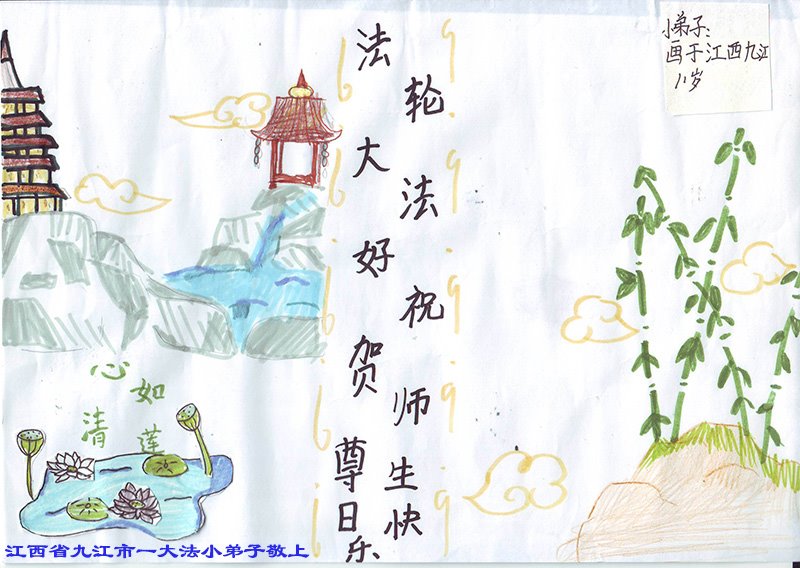 小弟子:
画于江西九江
11岁
法轮大法好祝贺师尊生日快乐
心如清莲
江西省九江市一大法小弟子敬上